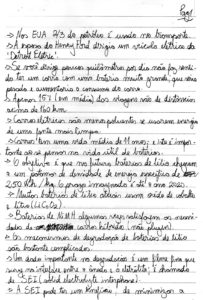 Pag 1
→ Nos EUA 2/3 do petróleo é usado no transporte.
→ A esposa do Henry Ford dirigia um veículo elétrico da
"Detroit Electric".
→ Se você dirige poucos quilômetros por dia não faz senti-
do ter um carro com uma bateria muito grande, que seria
pesada e aumentaria o consumo do carro.
→ Apenas 15% (em média) das viagens são de distâncias
acima de 160 km.
→ Carros elétricos são menos poluentes se usarem energia
de uma fonte mais limpa.
→ Carros tem uma vida média de 11 anos, e isto é impor-
tante de se pensar na vida útil de baterias.
→ O objetivo é que no futuro baterias de lítio cheguem
a um patamar de densidade de energia específica de
250 Wh/kg (o prazo imaginado é até o ano 2020).
→ Muitas baterias de lítio atuais usam óxido de cobalto
e lítio (LiCoO2)
→ Baterias de NiMH algumas vezes satisfazem as necessi-
dades de carros híbridos (não plugin).
→ Os mecanismos de degradação de baterias de lítio
são bastante complicados.
→ Um dado importante na degradação é um filme fino que
surge na interface entre o ânodo e o eletrólito, é chamado
de SEI (solid electrolyte interphase)
→ A SEI pode ter um